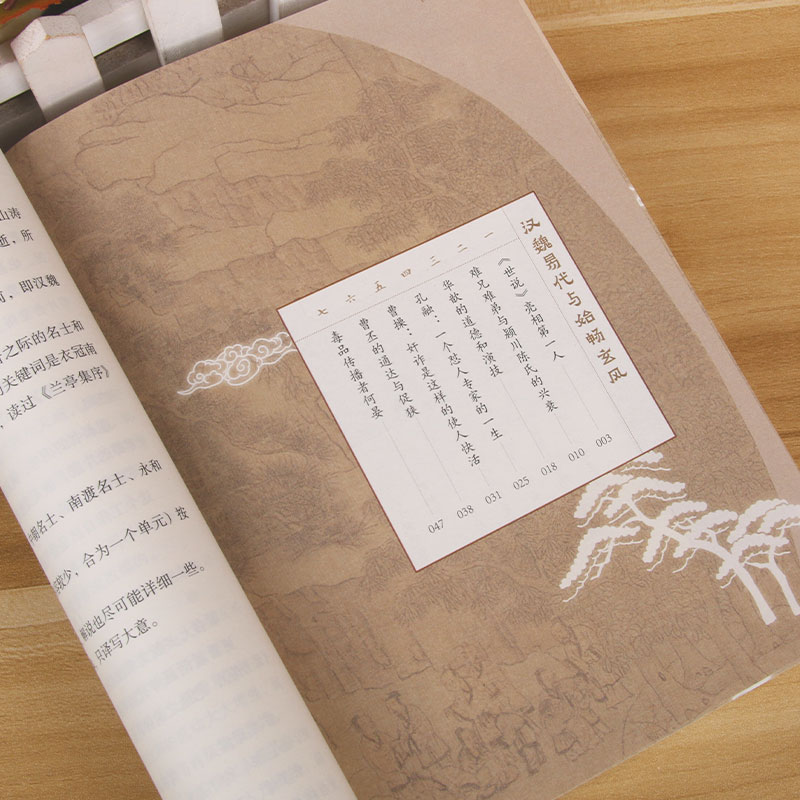 山涛
逝，所
，即汉魏
之际的名士和
关键词是衣冠南
，读过《兰亭集序》
名士、南渡名士、永和
较少，合为一个单元）按
解说也尽可能详细一些。
只译写大意。
汉魏易代与始畅玄风
一 《世说》亮相第一人 003
二 难兄难弟与颍川陈氏的兴衰 010
三 华歆的道德和演技 018
四 孔融：一个怼人专家的一生 025
五 曹操：奸诈是这样的使人快活 031
六 曹丕的通达与促狭 038
七 毒品传播者何晏 047